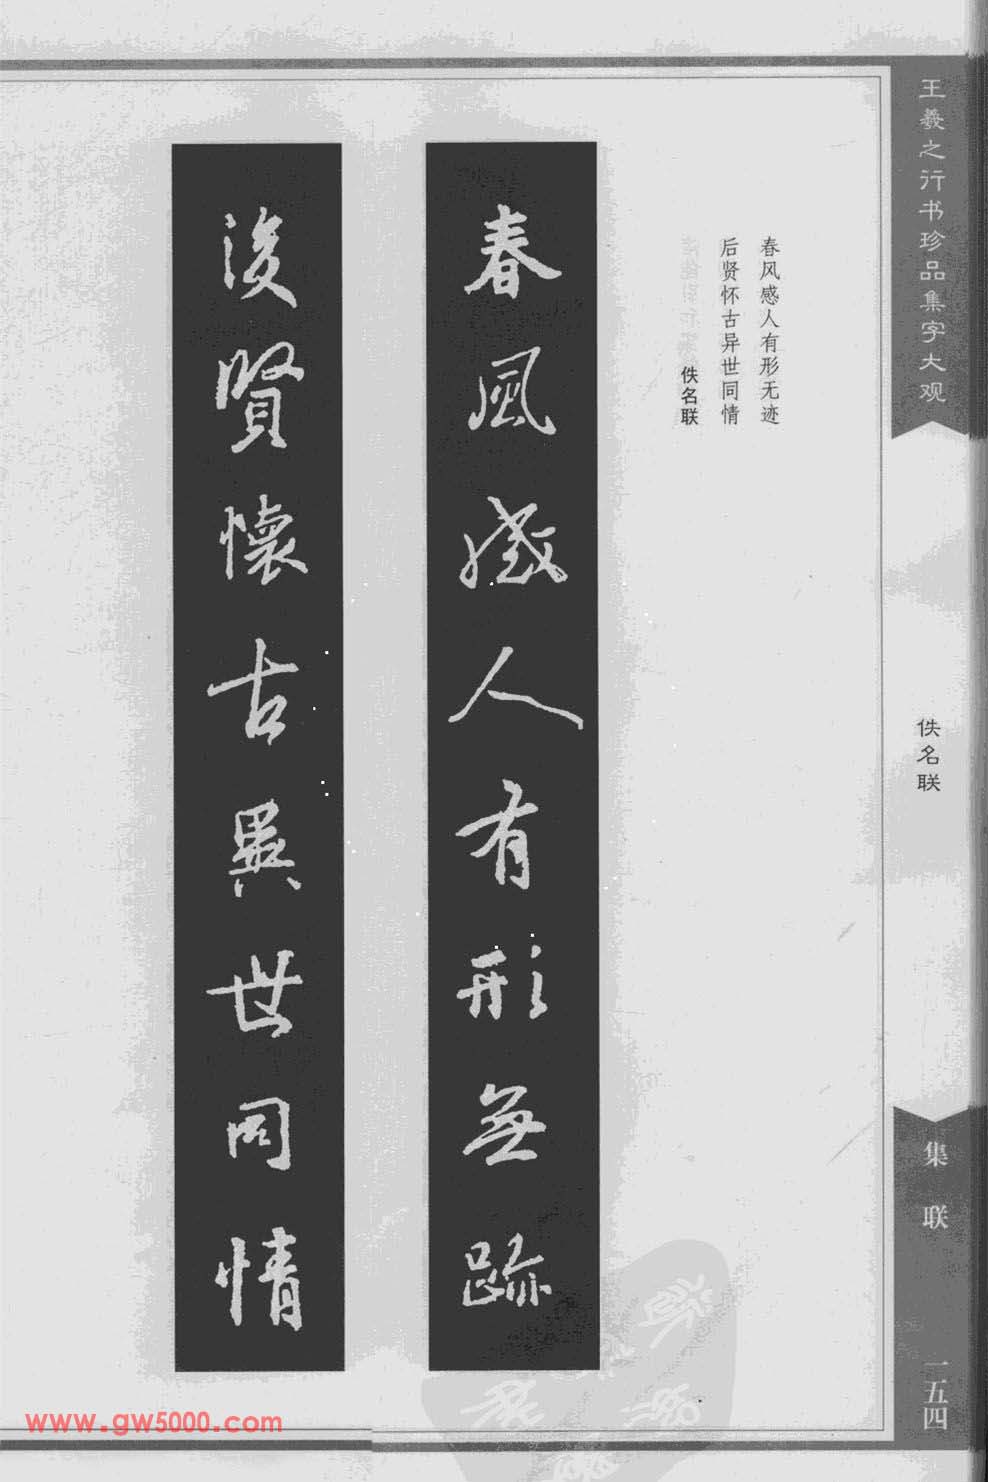 王羲之行书珍品集字大观
佚名联
集联
一五四
春风感人有形无迹
后贤怀古异世同情
佚名联
春風感人有形無跡
後賢懷古異世同情
www.gw5000.com